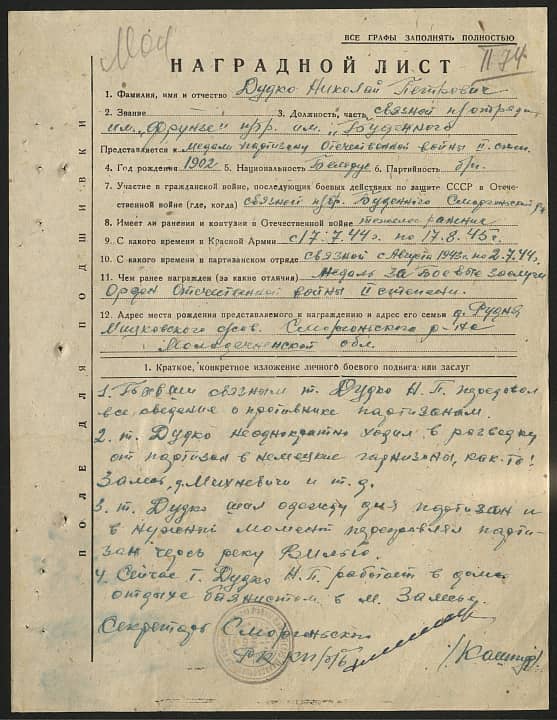 ВСЕ ГРАФЫ ЗАПОЛНЯТЬ ПОЛНОСТЬЮ
Мол
П 74
НАГРАДНОЙ ЛИСТ
1. Фамилия, имя и отчество Дудко Николай Петрович
2. Звание 3. Должность, часть связной п/отряда
им. "Фрунзе" п/бр. им. "Буденного
Представляется к медали партизану Отечественной войны II степ.
4. Год рождения 1902 5. Национальность Белорус 6. Партийность б/п.
7. Участие в гражданской войне, последующих боевых действиях по защите СССР в Отече-
ственной войне (где, когда) связной п/бр. Буденного Сморгонский р-н
8. Имеет ли ранения и контузии в Отечественной войне тяжелое ранение
9. С какого времени в Красной Армии с 17.7.44г. по 17.8.45г.
10. С какого времени в партизанском отряде связной с Августа 1943г. по 2.7.44г.
11. Чем ранее награжден (за какие отличия) Медаль За Боевые заслуги
Орден Отечественной войны II степени.
12. Адрес места рождения представляемого к награждению и адрес его семьи д. Рудня
Мицковского с/сов. Сморгонского р-на
Молодечненской обл.
1. Краткое, конкретное изложение личного боевого подвига или заслуг
1. Бывши связным т. Дудко Н. П. передовал
все сведение о противнике партизанам.
2. т. Дудко неоднократно ходил в розведку
от партизан в немецкие гарнизоны, как-то!
Залесь, д. Михневичи и т. д.
3. т. Дудко шил одежду для партизан и
в нужный момент переправлял парти-
зан через реку Вилью.
4. Сейчас т. Дудко Н. П. работает в доме
отдыха баянистом в м. Залесье.
Секретарь Сморгонского
РК КП/б/Б
ПОЛЕ ДЛЯ ПОДШИВКИ